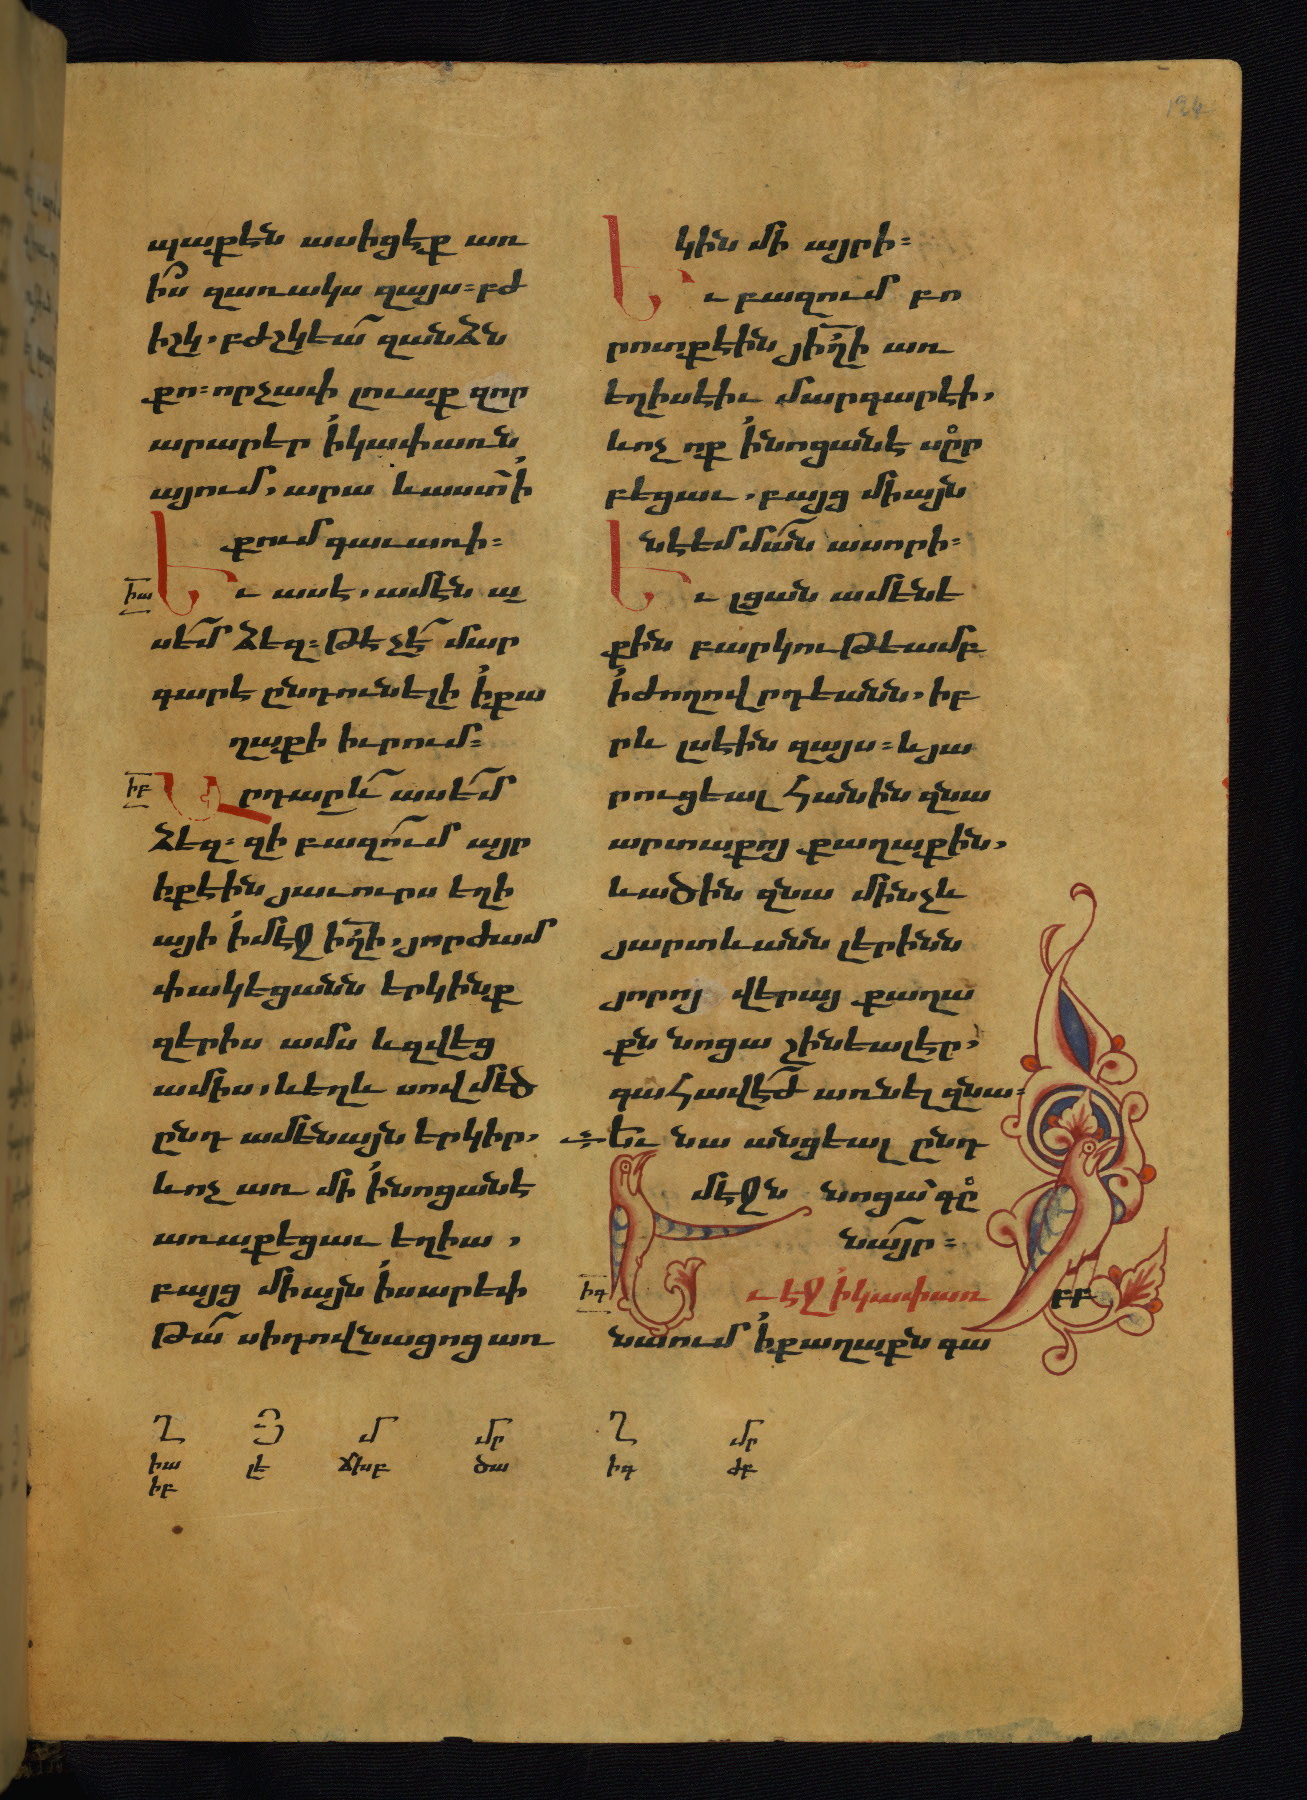 124
պաքէն ասիցէք առ
իս զառակս զայս։ բժ
իշկ, բժշկեա զանձն
քո։ որչափ լուաք զոր
արարեր ի կափառն
այում, արա և աստ ի
քում գաւառի։
իա
Եւ ասէ, ամէն ա
սեմ ձեզ։ թէ չէ մար
գարէ ընդունելի ի քա
ղաքի իւրում։
իբ
Արդարև ասեմ
ձեզ։ զի բազում այր
իք էին յաւուրս եղի
այի ի մէջ իղի, յորժամ
փակեցանն երկինք
զերիս ամս և զվեց
ամիս, և եղև սով մեծ
ընդ ամենայն երկիր,
և ոչ առ մի ի նոցանէ
առաքեցաւ եղիա,
բայց միայն ի սարեփ
թա սիդովնացոց առ
կին մի այրի։
Եւ բազում բո
րոտք էին յիղի առ
եղիսէիւ մարգարէի,
և ոչ ոք ի նոցանէ սըր
բեցաւ, բայց միայն
նէեմման ասորի։
Եւ լցան ամենե
քին բարկութեամբ
ի ժողովրդեանն, իբ
րև լսէին զայս։ և յա
րուցեալ հանին զնա
արտաքոյ քաղաքին,
և ածին զնա մինչև
յարտևանն լերինն
յորոյ վերայ քաղա
քն նոցա շինեալ էր,
գահավէժ առնել զնա։
Եւ նա անցեալ ընդ
մէջն նոցա գը
նայր։
իգ
Եւ էջ ի կափառ
նաում ի քաղաքն գա
բբ
Ղ Յ Մ Մր Ղ Մր
իա լէ ճխբ ծա իգ ժբ
իբ